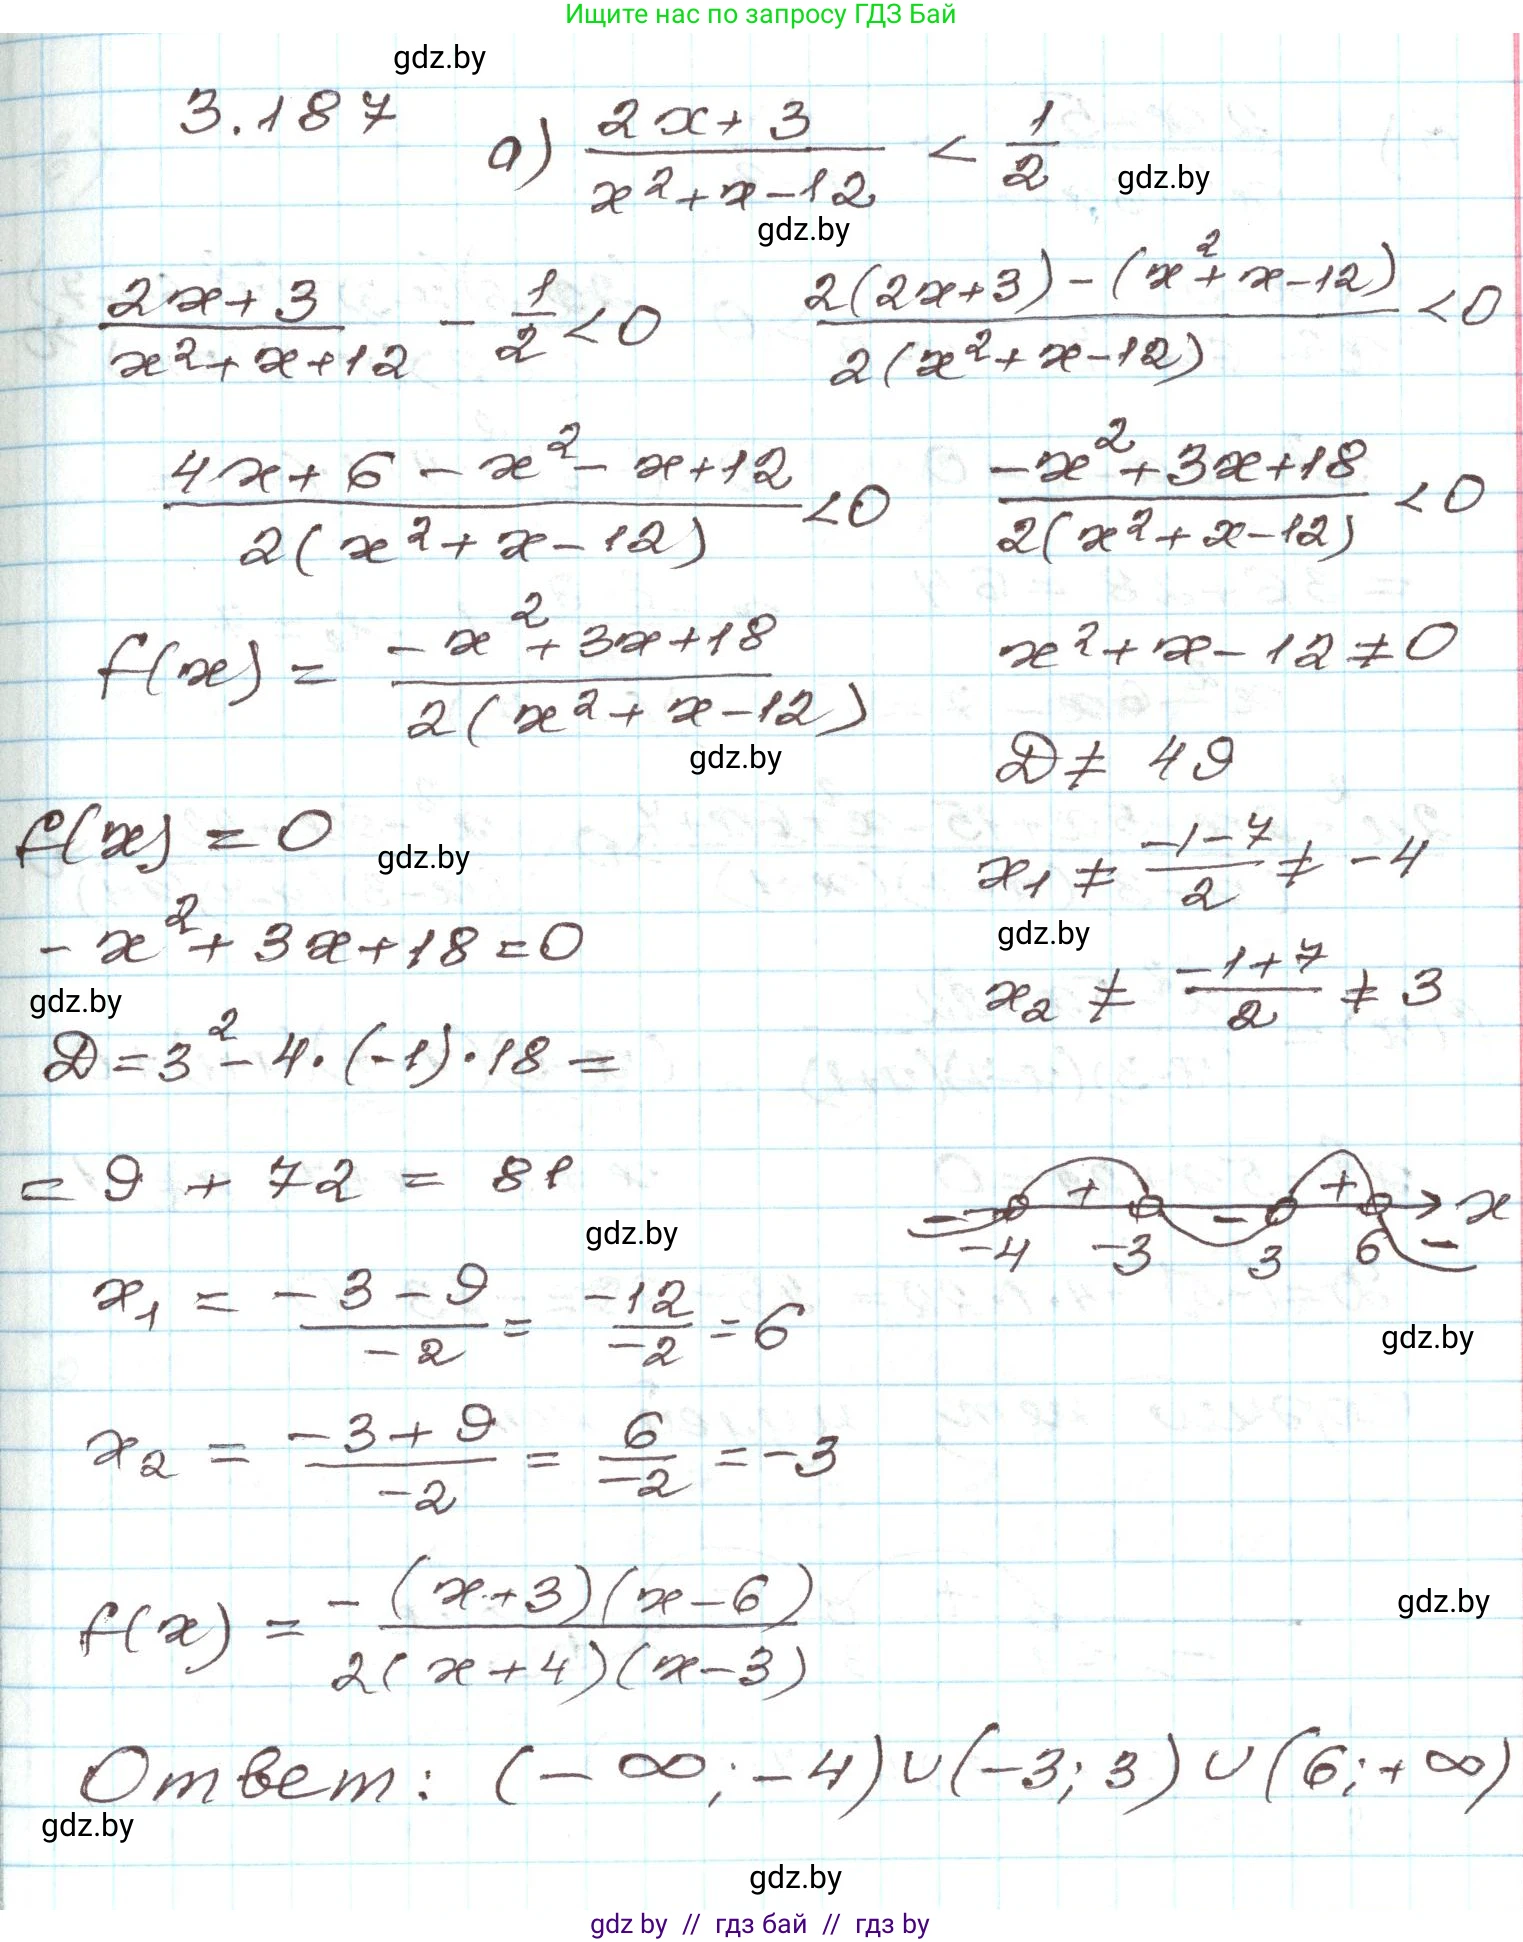 Ищите нас по запросу ГДЗ Бай
gdz.by
3.187 а) (2x+3)/(x²+x-12) < 1/2
gdz.by
gdz.by
(2x+3)/(x²+x+12) - 1/2 < 0 (2(2x+3)-(x²+x-12))/(2(x²+x-12)) < 0
(4x+6-x²-x+12)/(2(x²+x-12)) < 0 (-x²+3x+18)/(2(x²+x-12)) < 0
f(x) = (-x²+3x+18)/(2(x²+x-12)) x²+x-12≠0
gdz.by
D ≠ 49
f(x) = 0
gdz.by
x₁ ≠ (-1-7)/2 ≠ -4
gdz.by
-x²+3x+18=0
x₂ ≠ (-1+7)/2 ≠ 3
gdz.by
D=3²-4·(-1)·18=
=9+72=81
- + - + - x
-4 -3 3 6
gdz.by
x₁ = (-3-9)/-2 = -12/-2 = 6
gdz.by
x₂ = (-3+9)/-2 = 6/-2 = -3
f(x) = -(x+3)(x-6)/(2(x+4)(x-3))
gdz.by
Ответ: (-∞;-4)∪(-3;3)∪(6;+∞)
gdz.by
gdz.by
gdz by // гдз бай // гдз by